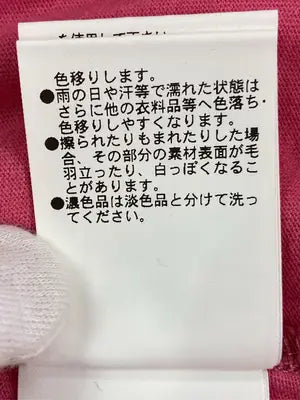 を使用して下さい。
色移りします。
●雨の日や汗等で濡れた状態は
さらに他の衣料品等へ色落ち・
色移りしやすくなります。
●擦られたりもまれたりした場
合、その部分の素材表面が毛
羽立ったり、白っぽくなるこ
とがあります。
●濃色品は淡色品と分けて洗っ
てください。